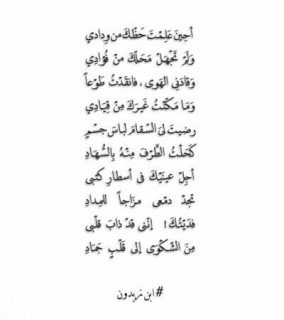 أحِينَ عَلِمْتَ حَظَّكَ من وِدادي
وَلَمْ تَجْهَلْ مَحَلَّكَ مِنْ فُؤادِي
وَقادَنِي الهَوَى، فانقَدْتُ طَوْعاً
وَمَا مَكَّنْتُ غَيرَكَ مِنْ قِيَادِي
رضيتَ لِيَ السَّقامَ لباسَ جسْمٍ
كَحَلْتُ الطَّرْفَ مِنْهُ بِالسُّهَادِ
أجِلْ عينَيْكَ في أسطارِ كتبي
تجدْ دمْعي مزَاجاً للمِدادِ
فدَيْتُكَ! إنّني قدْ ذابَ قَلْبي
مِنَ الشّكْوَى إلى قَلْبٍ جَمَادِ
#ابن زيدون